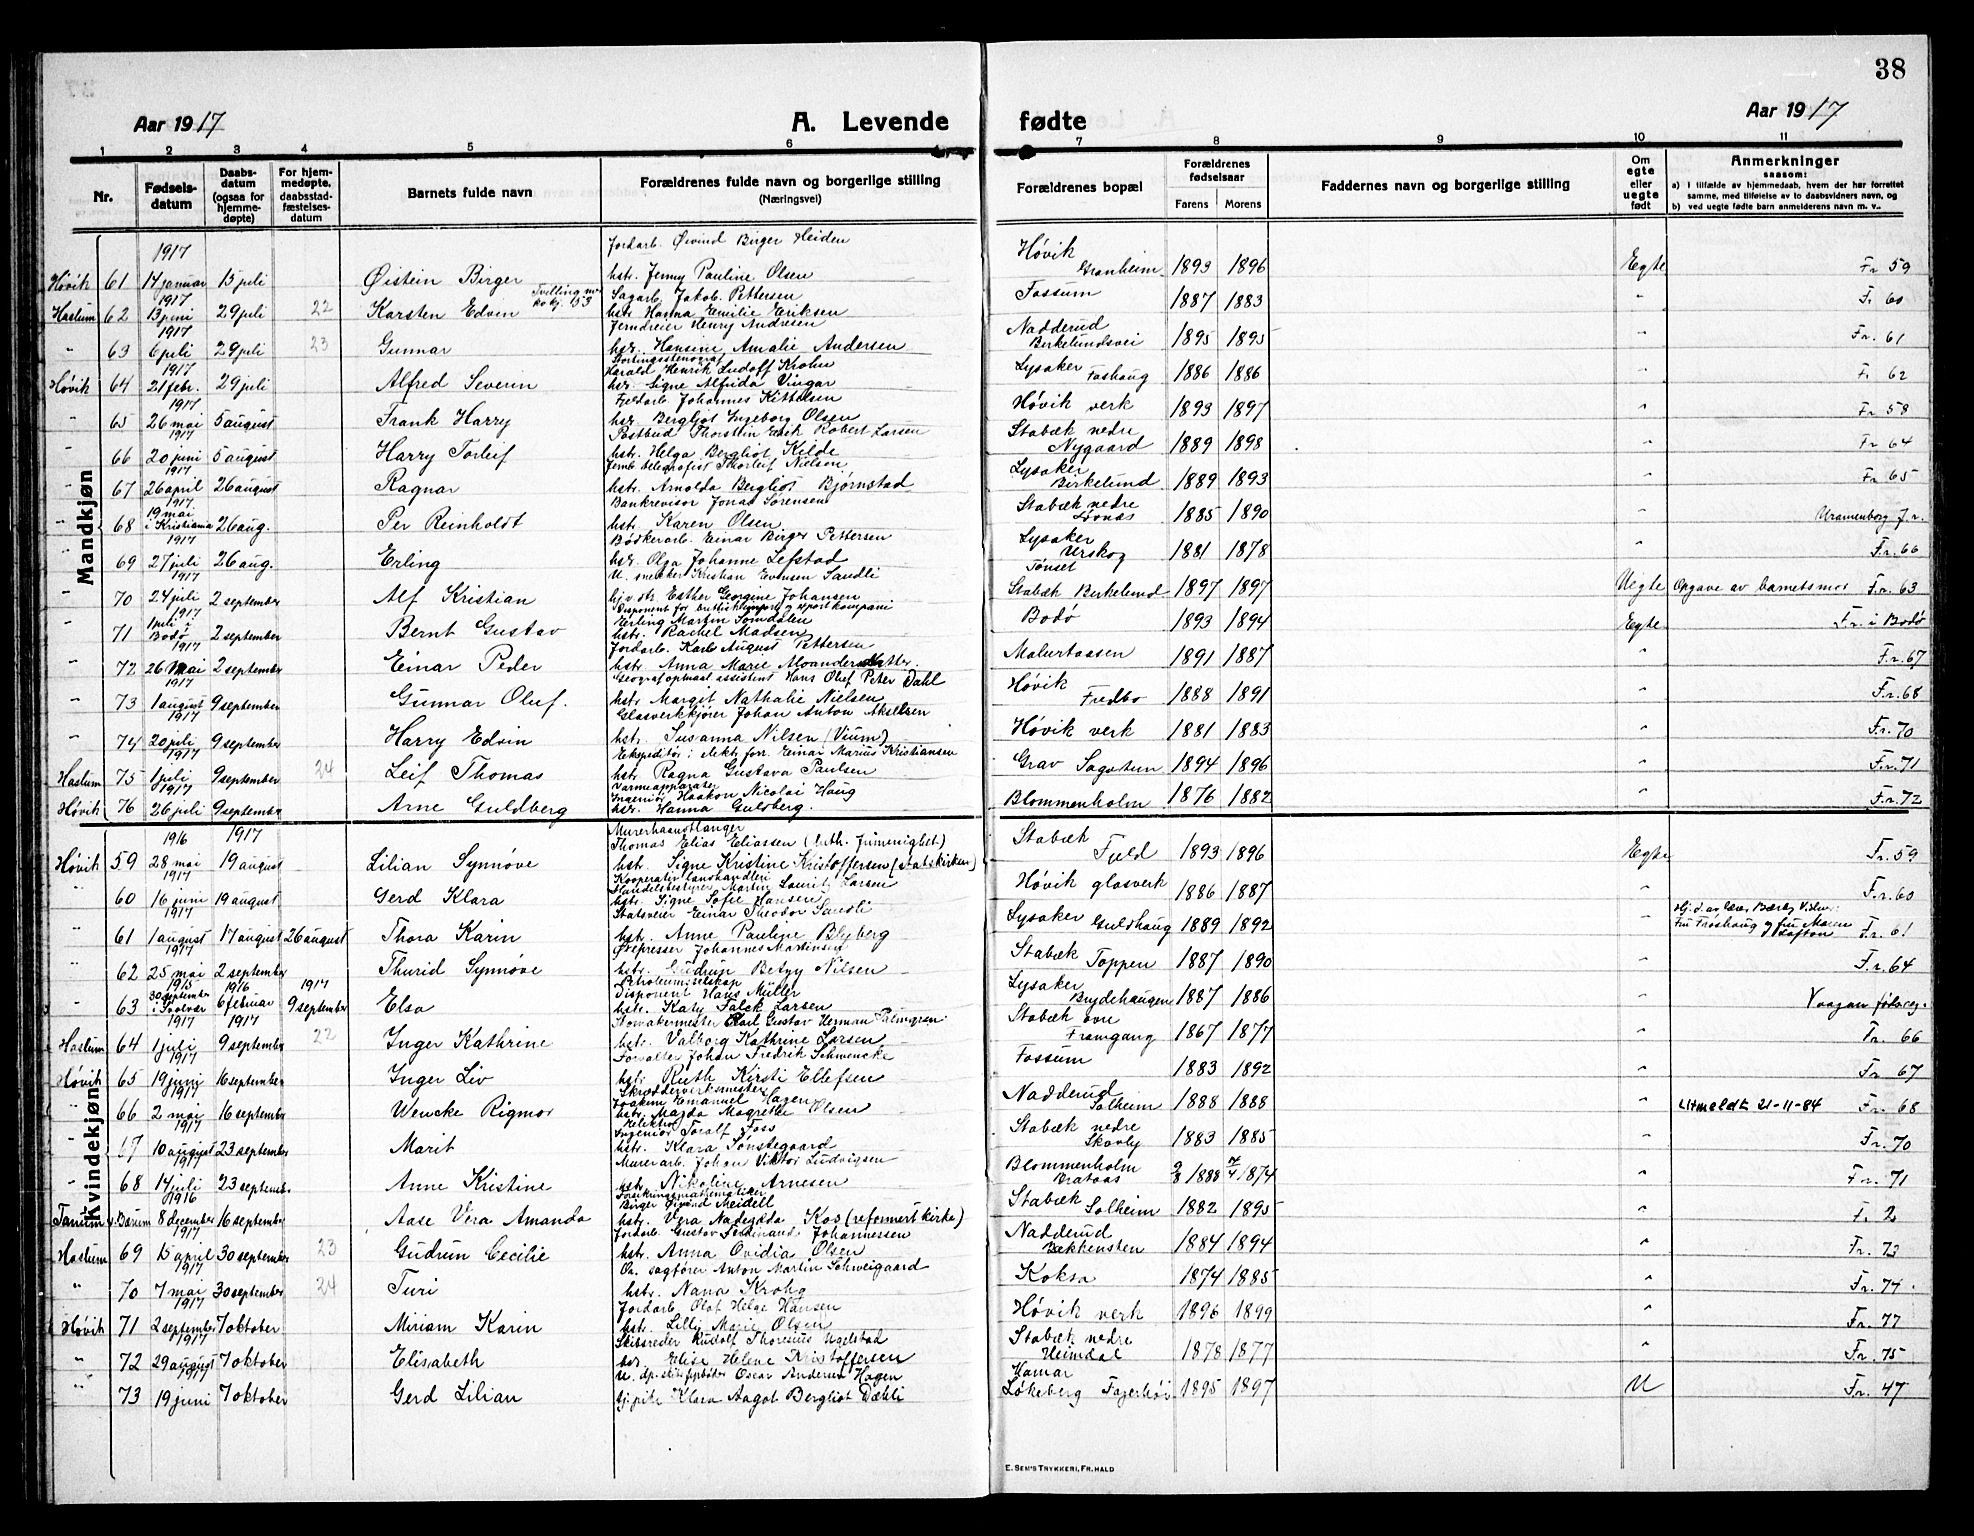 38
Aar 1917 A. Levende fødte Aar 1917
1 2 3 4 5 6 7 8 9 10 11
Nr. Fødselsdatum Daabsdatum (ogsaa for hjemmedøpte) For hjemmedøpte, daabsstadfæstelsesdatum Barnets fulde navn Forældrenes fulde navn og borgerlige stilling (Næringsvei) Forældrenes bopæl Forældrenes fødselsaar Farens Morens Faddernes navn og borgerlige stilling Om egte eller uegte født Anmerkninger saasom:
a) i tilfælde av hjemmedaab, hvem der har forrettet samme, med tilføielse av to daabsvidners navn, og
b) ved uegte fødte barn anmelderens navn m. v.
Mandkjøn
1917 Jordarb. Øivind Birger Heiden Høvik
Høvik 61 14 januar 15 juli Øistein Birger hstr. Jenny Pauline Olsen Granheim 1893 1896 Egte Fr 59
1917 Tvilling Sagarb. Jakob Pettersen
Haslum 62 13 juni 29 juli 22 Karsten Edvin hstr Hanna Emilie Eriksen Fossum 1887 1883 " Fr 60
1917 Jerndreier Henry Andresen Nadderud
" 63 6 juli 29 juli 23 Gunnar hstr. Hansine Amalie Andersen Birkelundsvei 1895 1895 " Fr. 61
1917 Stortingsstenograf Harald Henrik Ludolf Krohn Lysaker
Høvik 64 21 febr. 29 juli Alfred Severin hstr Signe Alfrida Vingar Foshaug 1886 1886 " Fr 62
1917 Johannes Kittelsen
" 65 26 mai 5 august Frank Harry hstr Bergliot Ingeborg Olsen Høvik verk 1893 1897 " Fr 58
1917 Postbud Thorstein Erik Robert Larsen Stabæk nedre
" 66 20 juni 5 august Harry Torleif hstr. Helga Bergliot Kilde Nygaard 1889 1898 " Fr 64
1917 Jernb. telegrafist Thorleif Nielsen Lysaker
" 67 26 april 26 august Ragnar hstr. Arnolda Bergliot Bjørnstad Birkelund 1889 1893 " Fr 65
1917 19 mai Bankrevisor Jonas Sørensen Stabæk nedre
" 68 i Kristiania 26 aug. Per Reinholdt hstr. Karen Olsen 1885 1890 " Uranienborg f.r.
1917 Bødkerarb. Einar Birger Pettersen Lysaker
" 69 27 juli 26 aug. Erling hstr. Olga Johanne Lefstad Urskog 1881 1878 " F.r. 66
1917 U. snekker Kristian Evensen Sandli Tønset
" 70 24 juli 2 september Alf Kristian Esther Georgine Johansen Stabæk Birkelund 1897 1897 Uegte Opgave av barnets mor F.r. 63
1917 1 juli i Erling Martin Tomdalen
" 71 Bodø 2 september Bernt Gustav hstr. Rachel Madsen Bodø 1893 1894 Egte Fr i Bodø
1917 Jordarb. Karl August Pettersen
" 72 26 mai 2 september Einar Peder hstr. Anna Marie Malurtaasen 1891 1887 " F.r. 67
1917 Geografopmaal assistent Hans Olef Peter Dahl Høvik
" 73 1 august 9 september Gunnar Oluf. hstr Margit Nathalie Nielsen Fredbo 1888 1891 " F.r. 68
1917 Glasverkkjører Johan Anton Akselsen
" 74 20 juli 9 september Harry Edvin hstr. Susanna Nilsen (Vium) Høvik verk 1881 1883 " F.r. 70
1917 Ekspeditør i elektr. forr. Einar Marius Kristiansen
Haslum 75 1 juli 9 september 24 Leif Thomas hstr Ragna Gustava Paulsen Grav Sagstuen 1894 1896 " F.r. 71
1917 Varmeapparater Ingeniør Haakon Nicolai Haug
Høvik 76 26 juli 9 september Arne Guldberg hstr. Hanna Gulsberg Blommenholm 1876 1882 " F.r. 72
Kvindekjøn
1916 1917 Murerhaandlanger Thomas Elias Eliassen (luth. frimenighet) Stabæk
Høvik 59 28 mai 19 august Lilian Synnøve hstr. Signe Kristine Kristoffersen (statskirken) Fuld 1893 1896 Egte Fr. 59
1917 Kooperativ Handelsbestyrer Martin Lauritz Larsen
" 60 16 juni 19 august Gerd Klara hstr. Signe Sofie Hansen Høvik glasverk 1886 1887 " F.r. 60
1917 Einar Theodor Sandli Lysaker
" 61 1 august 17 august 26 august Thora Karin hstr. Anne Pauline Blyberg Guldhaug 1889 1892 " Fru Frøshaug og fru Maren F.r. 61
1917 Johannes Martinsen Stabæk
" 62 25 mai 2 september Thurid Synnøve hstr. Gudrun Betzy Nilsen Toppen 1887 1890 " F.r. 64
1915 1916 1917 Petroleumselskap Disponent Hans Müller Lysaker
" 63 30 september i Svolvær 6 februar 9 september Elsa hstr. Katy Falck Larsen Brydehaugen 1887 1886 " Vaagan
1917 1917 Carl Gustav Herman Palmgren Stabæk øvre
Haslum 64 1 juli 9 september 22 Inger Kathrine hstr. Valborg Kathrine Larsen Framgang 1867 1877 " Fr. 66
1917 Forvalter Johan Fredrik Schwencke
Høvik 65 19 juni 16 september Inger Liv hstr Ruth Kirsti Ellefsen Fossum 1883 1892 " Fr. 67
1917 Skræddervirksmester Joakim Emanuel Hagen Nadderud
" 66 2 mai 16 september Wencke Rigmor hstr. Magda Magrethe Olsen Solheim 1888 1888 " Utmeldt 21-11-84 Fr. 68
1917 Ingeniør Toralf Foss Stabæk nedre
" 67 10 august 23 september Marit hstr. Klara Sønstegaard Skovly 1883 1885 " Fr. 70
1917 Murerarb. Johan Viktor Ludvigsen Blommenholm
" 68 14 juli 23 september Anne Kristine hstr. Nikoline Arnesen 1888 1874 " Fr. 71
1916 Forsikringsmatematiker Birger Øivind Meidell Stabæk
Tanum 8 december 16 september Aase Vera Amanda hstr. Vera Nadegøda Kos (reformert kirke) Solheim 1882 1895 " Fr. 2
1917 Jordarb. Gustav Ferdinand Johannessen Nadderud
Haslum 69 15 april 30 september 23 Gudrun Cecilie hstr. Anna Ovidia Olsen Bækkensten 1884 1894 " Fr. 73
1917 O.r. sagfører Anton Martin Schweigaard
" 70 7 mai 30 september 24 Turi hstr. Nana Krohg Koksa 1874 1885 " Fr. 74
1917 Jordarb Olof Helge Hansen
Høvik 71 2 september 7 oktober Miriam Karin hstr. Lilly Marie Olsen Høvik verk 1896 1899 " Fr. 77
1917 Skibsreder Rudolf Thoresius Ugelstad Stabæk nedre
" 72 29 august 7 oktober Elisabeth hstr. Elise Helene Kristoffersen Heimdal 1878 1877 " Fr. 75
1917 Oscar Andersen Hagen Hamar
" 73 19 juni 7 oktober Gerd Lilian Klara Aagot Bergliot Dæhli Løkeberg Fagerhøi 1895 1897 U Fr. 47
E. SEM'S TRYKKERI, FR.HALD